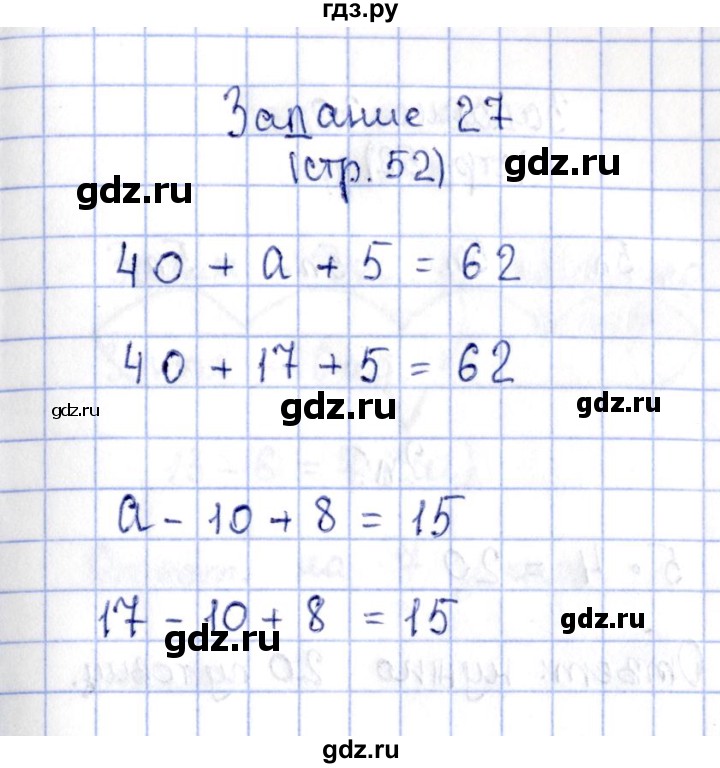 гдз.ру
Задание 27
(стр. 52)
gdz.ru
gdz.ru
40 + а + 5 = 62
40 + 17 + 5 = 62
gdz.ru
gdz.ru
gdz.ru
а - 10 + 8 = 15
17 - 10 + 8 = 15
gdz.ru
gdz.ru
gdz.ru